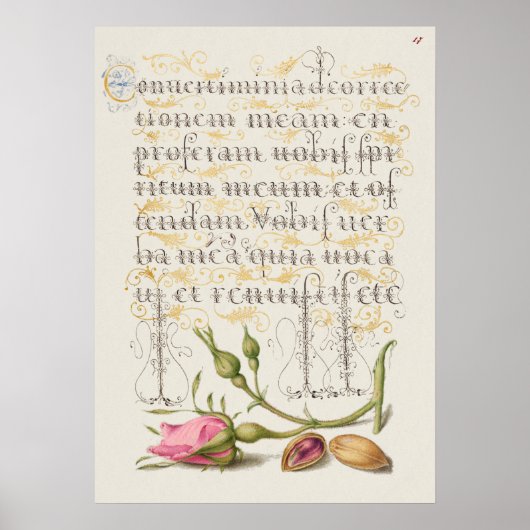 17
Conuertimini ad correc
tionem meam: en
proferam uobis spi
ritum meum: et os
tendam Vobis uer
ba mea quia uoca
ui et renuistis etc